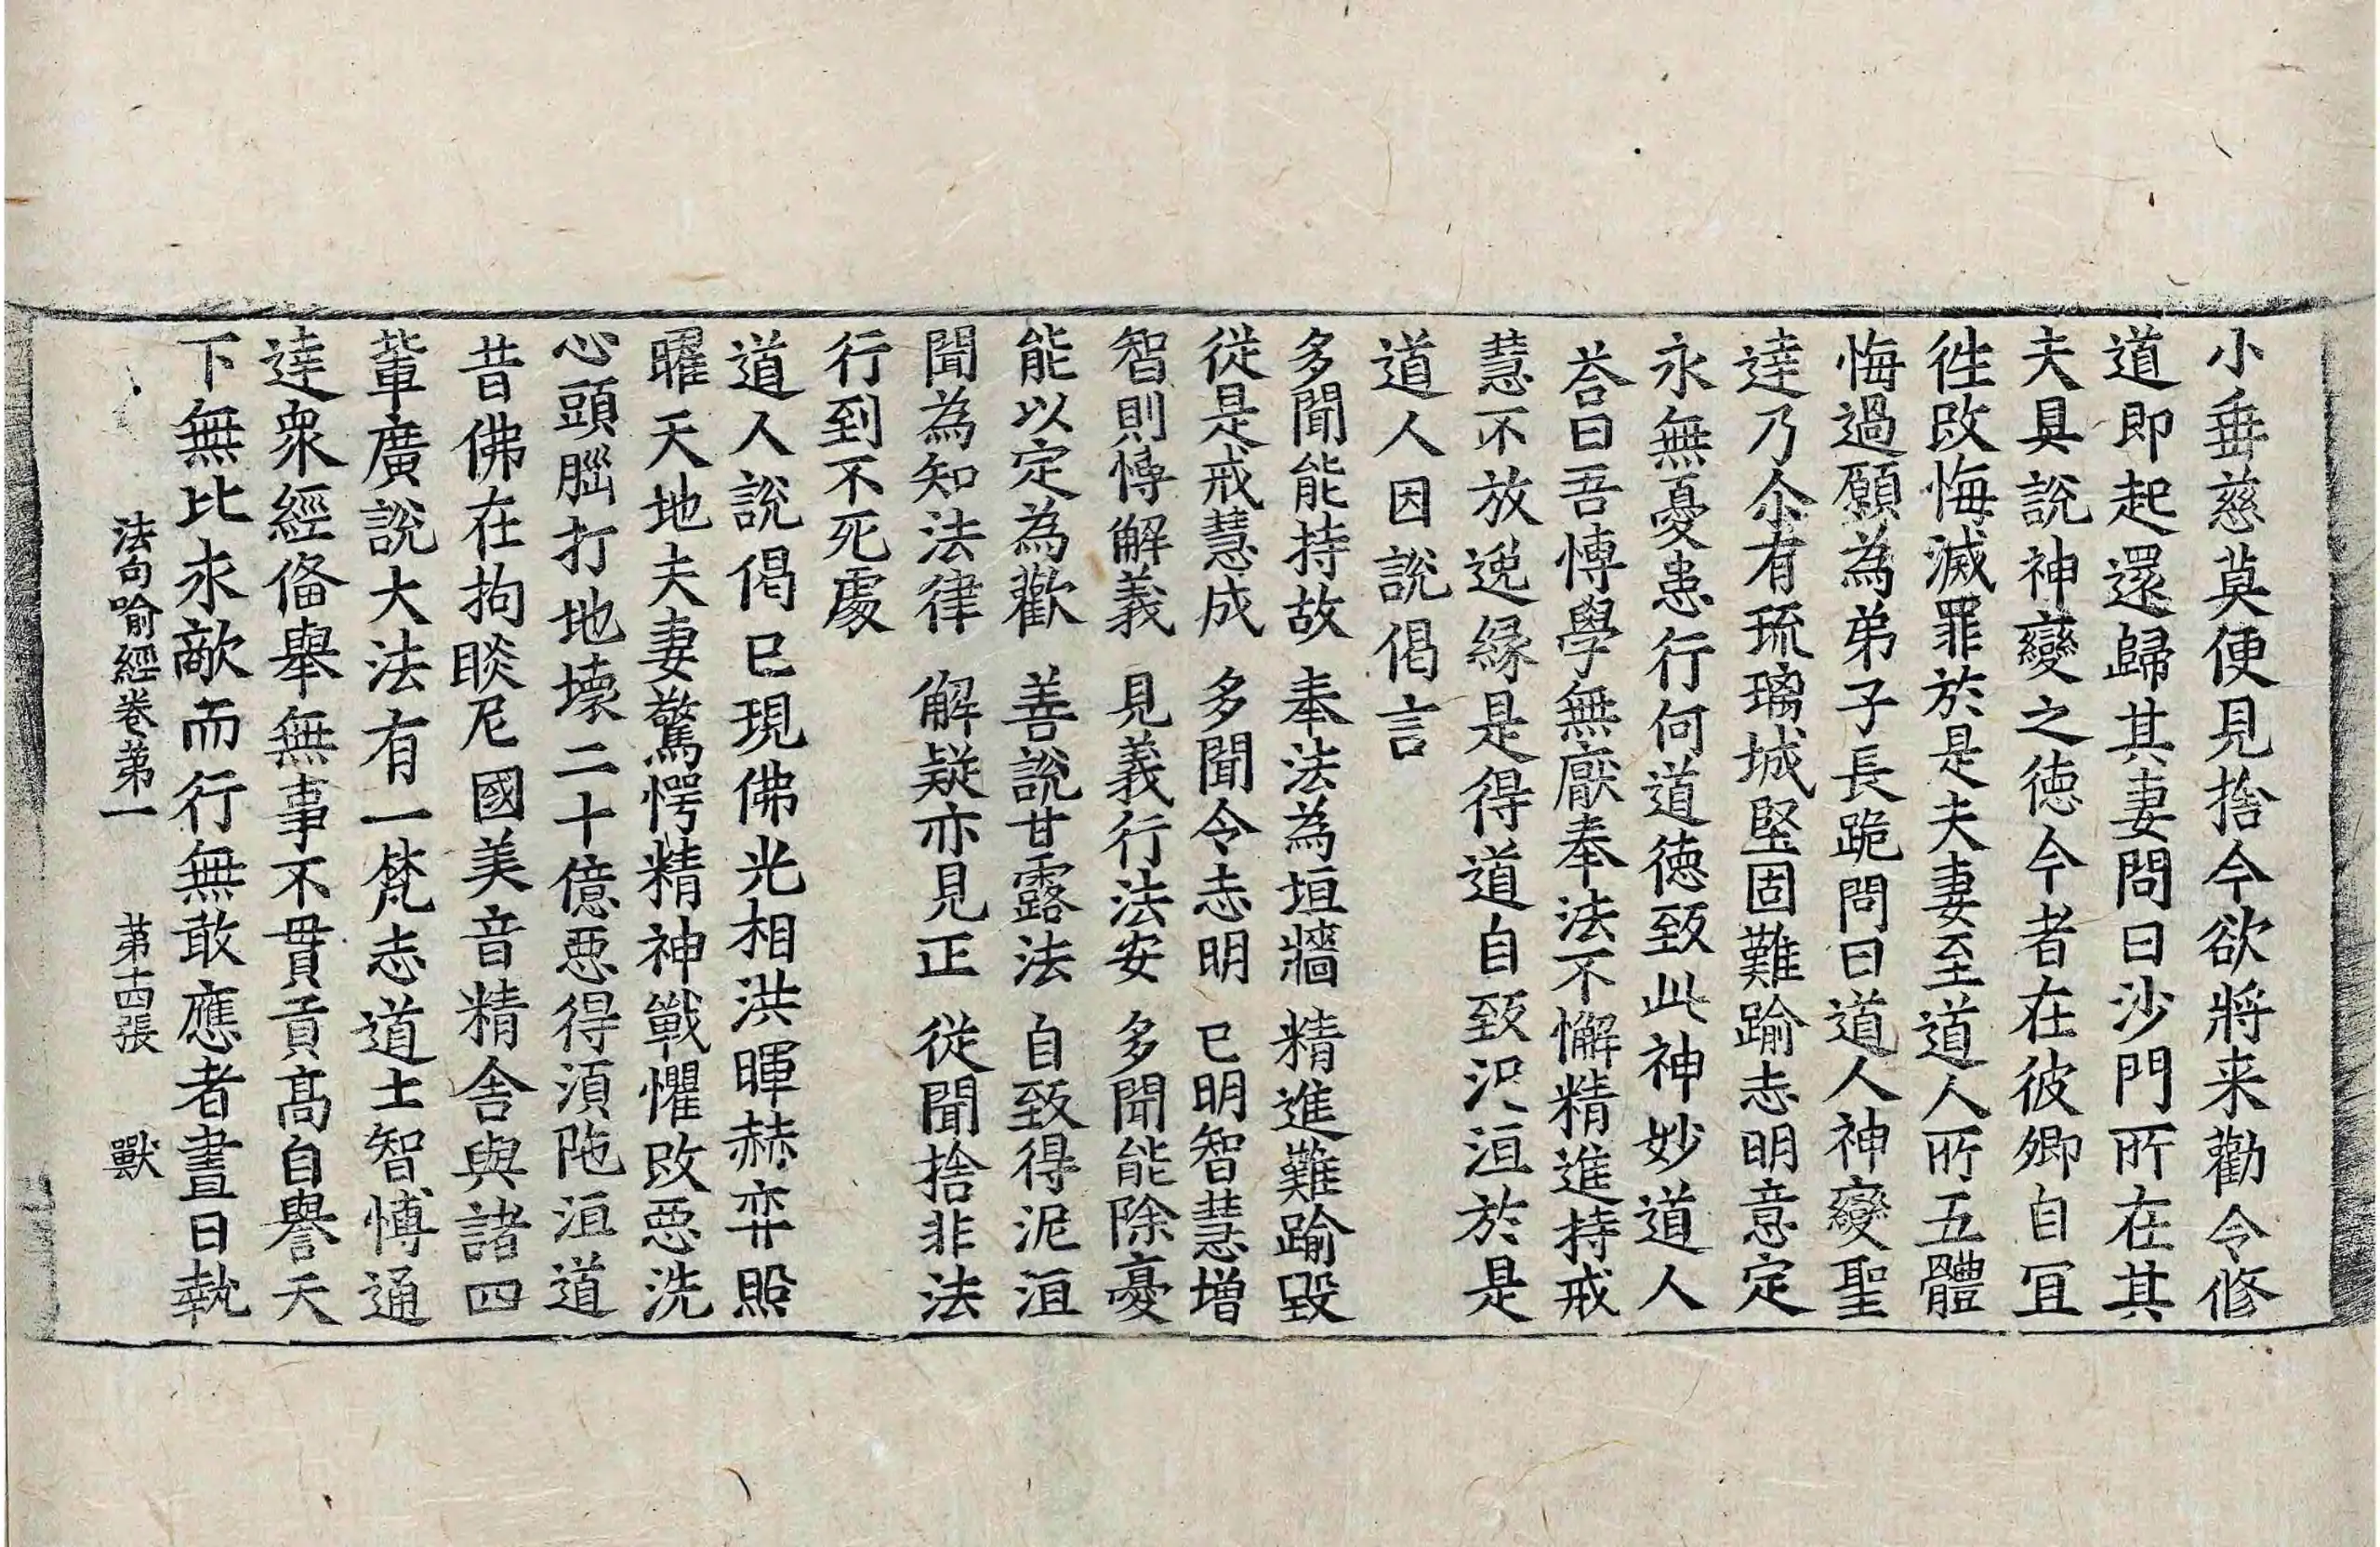 小垂慈莫便見捨今欲將来勸令修
道即起還歸其妻問曰沙門所在其
夫具說神變之徳今者在彼卿自冝
徃改悔滅罪於是夫妻至道人所五體
悔過願為弟子長跪問曰道人神變聖
達乃尒有琉璃城堅固難踰志明意定
永無憂患行何道徳致此神妙道人
荅曰吾愽學無厭奉法不懈精進持戒
慧不放逸緣是得道自致泥洹於是
道人因說偈言
多聞能持故　奉法為垣牆　精進難踰毀
從是戒慧成　多聞令志明　已明智慧增
智則愽解義　見義行法安　多聞能除憂
能以定為歡　善說甘露法　自致得泥洹
聞為知法律　解疑亦見正　從聞捨非法
行到不死處
道人說偈已現佛光相洪暉赫弈照
曜天地夫妻驚愕精神戰懼改惡洗
心頭腦打地壞二十億惡得湏陁洹道
昔佛在拘睒尼國美音精舍與諸四
輩廣說大法有一梵志道士智愽通
達衆經俻舉無事不貫貢髙自譽天
下無比求敵而行無敢應者晝日執
法句喻經卷苐一　苐十四張　獸